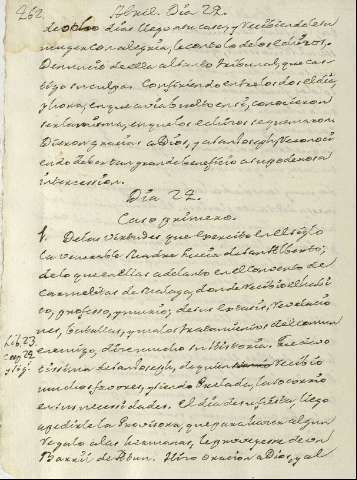 262
Abril. Dia 22.
de ocho dias llego a su casa, y recibiendo a su
muger con alegria, le conto lo de los echizos.
Denuncio de ella al Santo Tribunal, que cas-
tigo sus culpas. Confirieron entre los dos el dia,
y hora, en que avia buelto en si, y conocieron
ser la misma, en que los echizos se quemaron.
Dieron gracias a Dios, y a San Joseph, recono-
ciendo deber tan grande beneficio a su poderosa
intercession.
Dia 22.
Caso primero.
1. De las virtudes que exercito en el siglo
la Venerable Madre Lucia de San Alberto,
de lo que en ellas adelanto en el Convento de
Carmelitas de Malaga, donde recibio el habi-
to, professo, y murio, de sus extasis, revelacio-
nes, batallas, y malos tratamientos del comun
enemigo, dire mucho su Historia. Fue devo-
tissima de San Joseph, de quien recibio
muchos favores, y siendo Prelada, la socorrio
en sus necesidades. El dia de su fiesta, llego
a pedirle la Provisora, que para hacer algun
regalo a las hermanas, le proveyesse de un
Barril de Atun. Hizo oracion a Dios, y al
Lib. 23.
Cap. 22.
y sig.